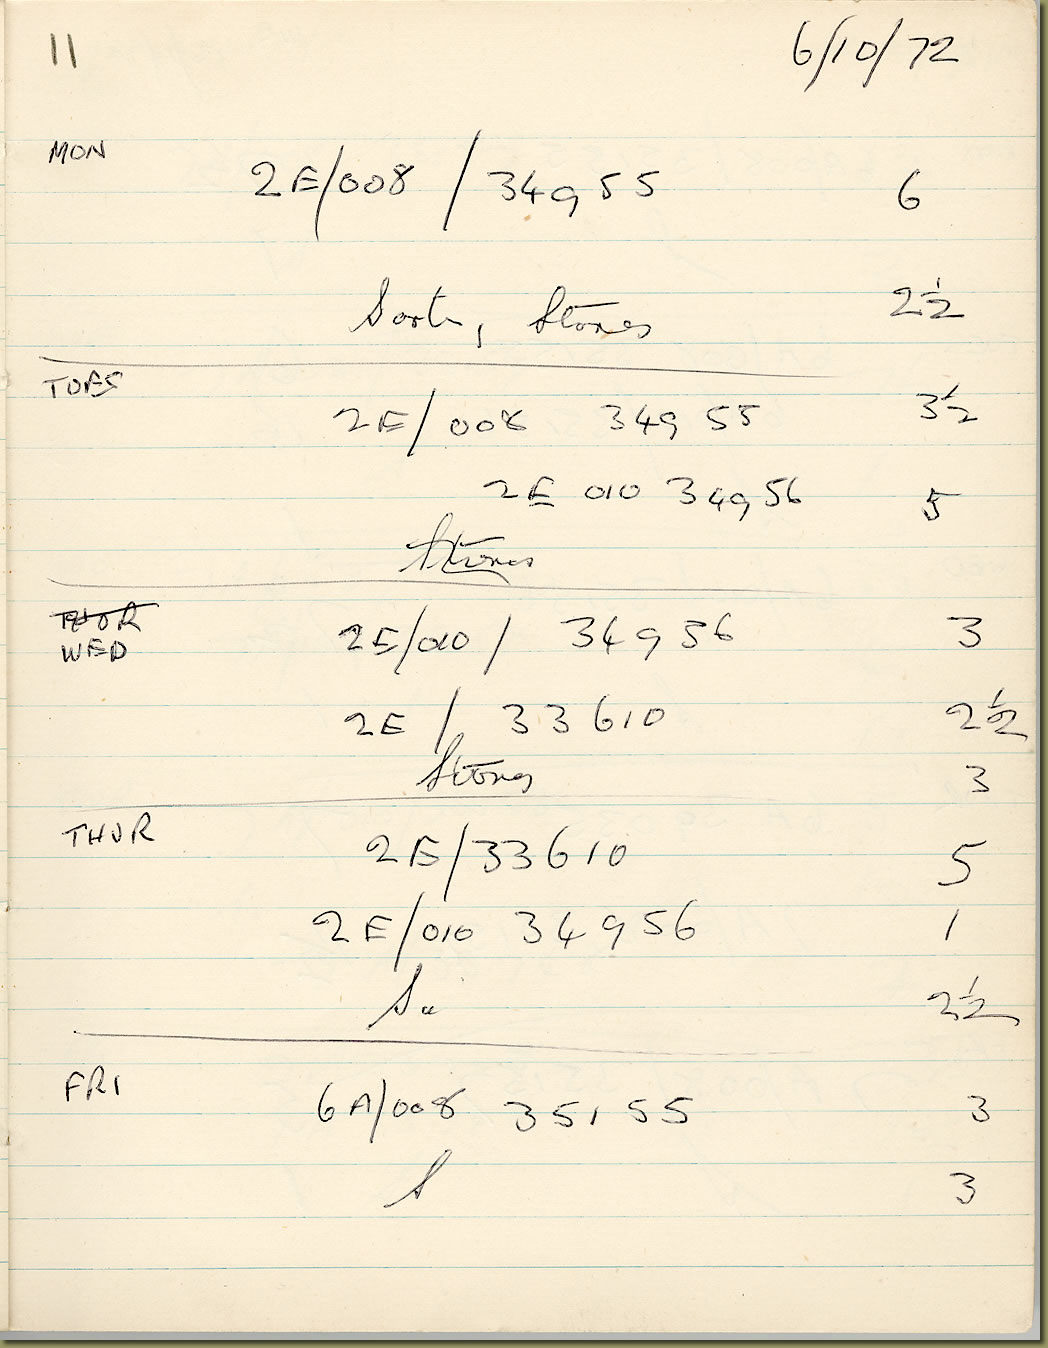 11 6/10/72
MON
2E/008 / 34955 6
Sort, Stores 2½
TUES
2E/008 34955 3½
2E 010 34956 5
Stores
THUR
WED 2E/010 / 34956 3
2E / 33610 2½
Stores 3
THUR 2E/33610 5
2E/010 34956 1
S 2½
FRI
6A/008 35155 3
S 3